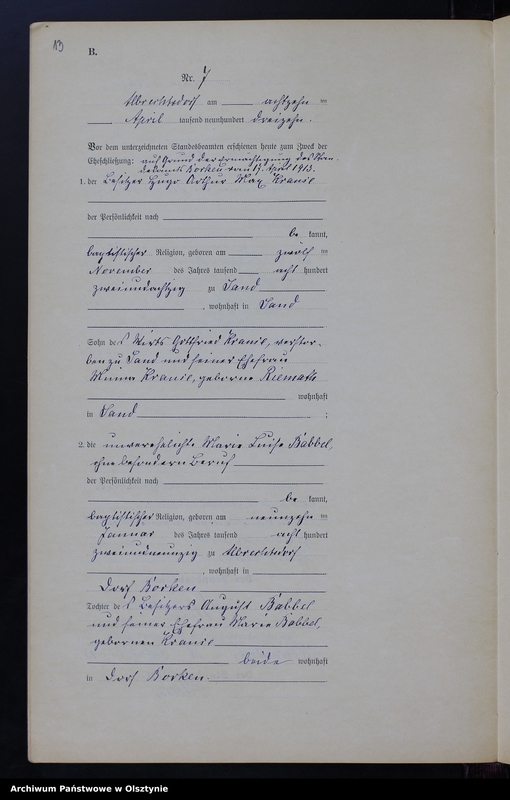 13
B.
Nr. 7
Albrechtsdorf am achtzehn ten
April tausend neunhundert dreizehn.
Vor dem unterzeichneten Standesbeamten erschienen heute zum Zweck der
Eheschließung: auf Grund der Ermächtigung des Stan-
desamts Borken vom 17. April 1913.
1. der Besitzer Hugo Arthur Max Krause
der Persönlichkeit nach
be kannt,
baptistischer Religion, geboren am zwölf ten
November des Jahres tausend acht hundert
zweiundachtzig zu Sand
, wohnhaft in Sand
Sohn des Wirts Gottfried Krause, verstor-
ben zu Sand und seiner Ehefrau
Krause, geborene
wohnhaft
in Sand ;
2. die unverehelichte Marie Luise Babbel,
ohne besondern Beruf
der Persönlichkeit nach
be kannt,
baptistischer Religion, geboren am neunzehn ten
Januar des Jahres tausend acht hundert
zweiundneunzig zu Albrechtsdorf
, wohnhaft in
Dorf Borken
Tochter des Besitzers August Babbel
und seiner Ehefrau Marie Babbel,
geborenen Krause
beide wohnhaft
in Dorf Borken.
Archiwum Państwowe w Olsztynie